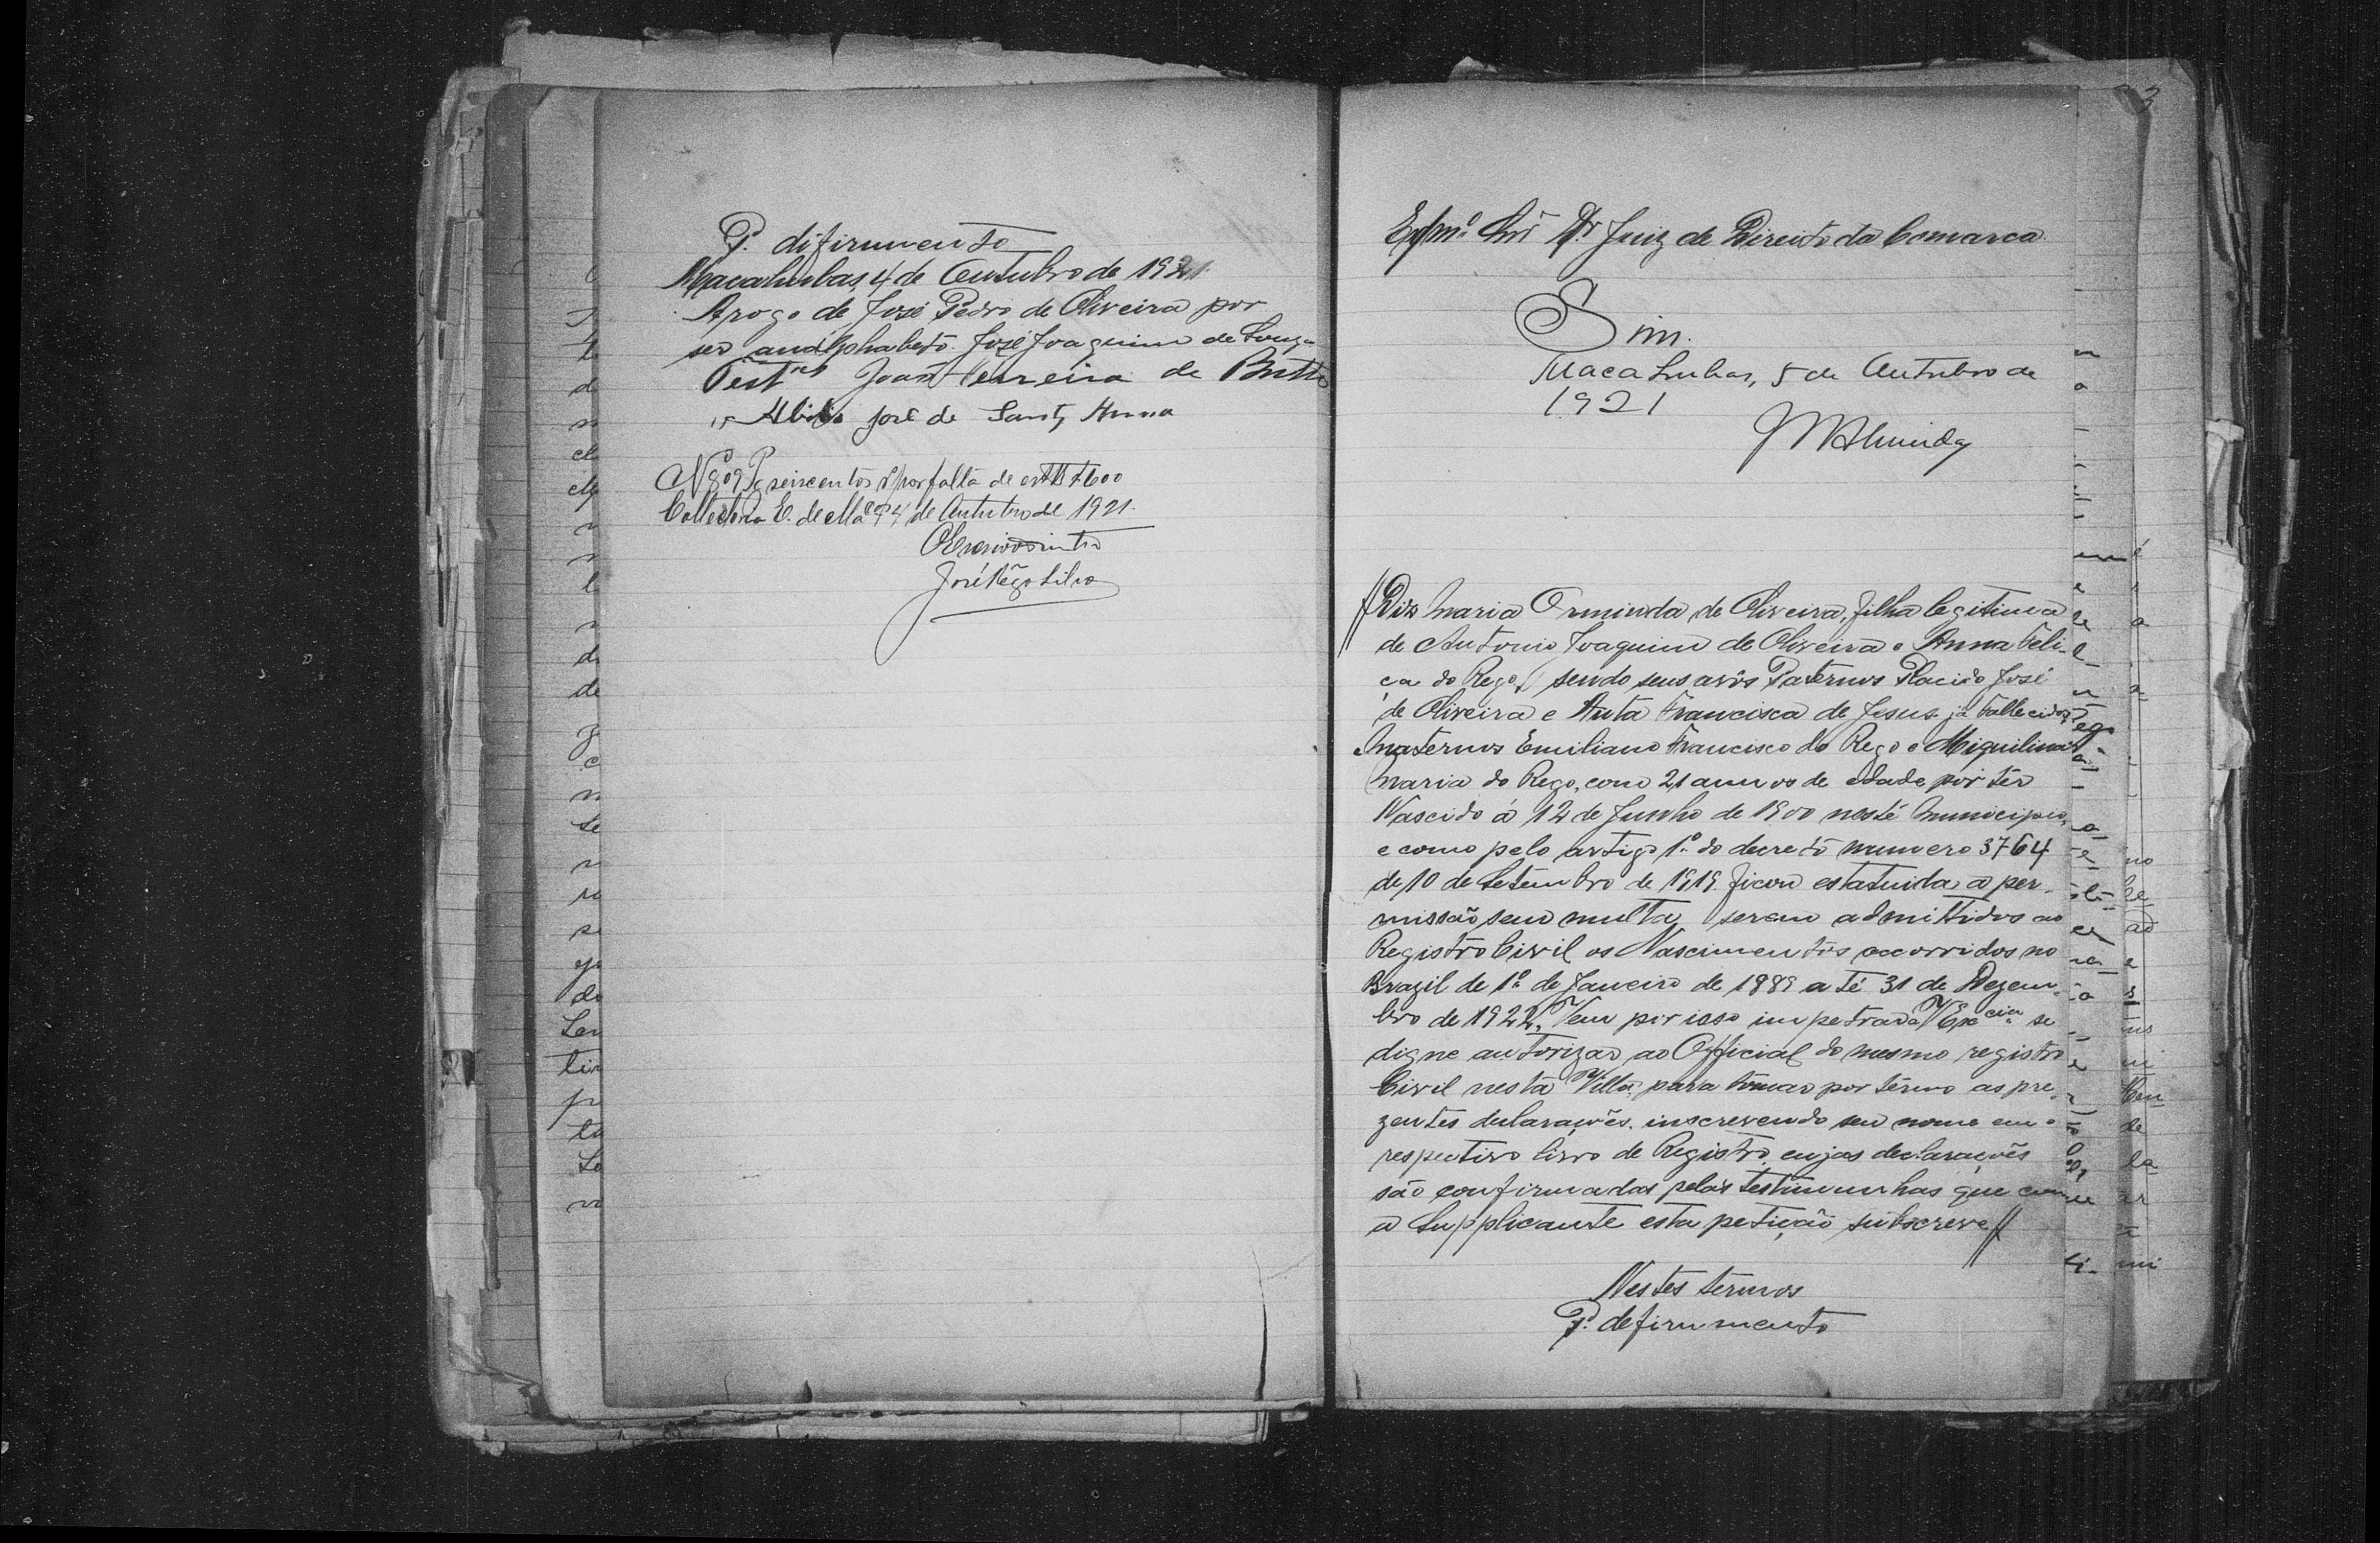 P. difirimento
Macahubas, 4 de Outubro de 1921
Arogo de José Pedro de Oliveira por
ser analphabeto. José Joaquim de Souza
Test.as João Ferreira de Britto
" José de Sant'Anna
N 809 Pg seiscentos rs por falta de est. $600
Collectoria E. de Mac.as 4 de Outubro de 1921.
José Rêgo Silva
3
Exmº Snr Dr Juiz de Direito da Comarca
Sim.
Macahubas, 5 de Outubro de
1921
Almeida
Diz Maria Orminda de Oliveira, filha legitima
de Antonio Joaquim de Oliveira e Anna Feli-
ca do Rego, sendo seus avôs Paternos Placido José
de Oliveira e Auta Francisca de Jesus já fallecidos,
Maternos Emiliano Francisco do Rego e Miquilina
Maria do Rego, com 21 annos de edade por têr
Nascido á 12 de Junho de 1900 neste Municipio,
e como pelo artigo 1º do decreto numero 3764
de 10 de Setembro de 1919. ficou estatuida a per-
missão sem multa, serem admittidos ao
Registro Civil os Nascimentos occorridos no
Brazil de 1º de Janeiro de 1889 a té 31 de Dezem-
bro de 1922, Vem por isso impetrar a V Exᶜⁱᵃ se
digne autorizar ao Official do mesmo registro
Civil nesta Villa, para tomar por têrmo as pre-
zentes declarações, inscrevendo seu nome em o
respectivo livro de Registro, cujas declarações
são confirmadas pelas testimunhas que com
a Supplicante esta petição subscreve
Nestes termos
P. defirimento